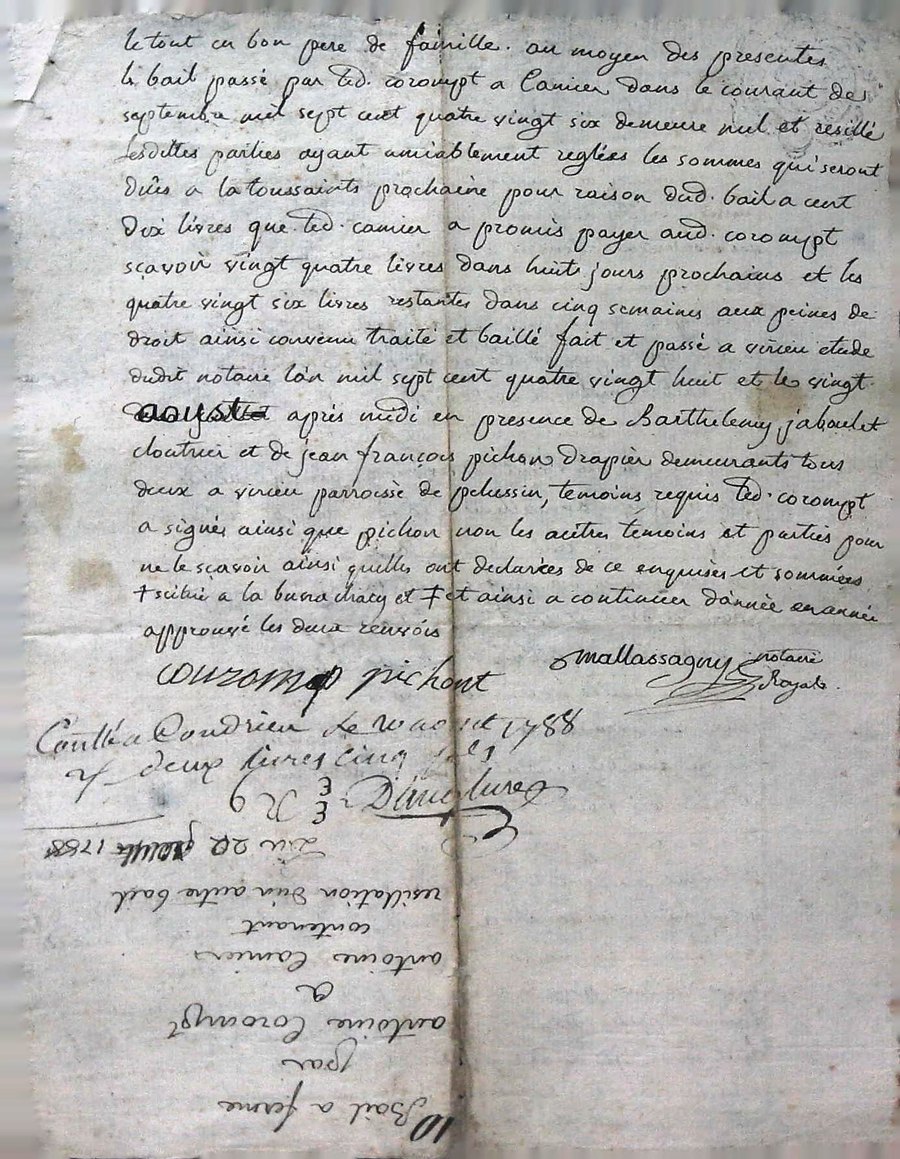 le tout en bon pere de famille. au moyen des presentes
le bail passé par led. corompt a Camier dans le courant de
septembre mil sept cent quatre vingt six demeure nul et resillé
Lesdittes parties ayant amiablement reglées les sommes qui seront
dûes a la toussaints prochaine pour raison dud. bail a cent
dix livres que led. camier a promis payer aud. corompt
sçavoir vingt quatre livres dans huit jours prochains et les
quatre vingt six livres restantes dans cinq semaines aux peines de
droit ainsi convenu traité et baillé fait et passé a virieu etude
dudit notaire l'an mil sept cent quatre vingt huit et le vingt
aoust après midi en presence de Barthelemy jaboulet
cloutrier et de jean françois pichon drapier demeurants tous
deux a virieu parroisse de pelussin, temoins requis led. corompt
a signés ainsi que pichon non les autres temoins et parties pour
ne le sçavoir ainsi quelles ont declarées de ce enquises et sommées
‡ scitué a la et ‡ et ainsi a continuer d'année en année
approuvé les deux renvois
couromp pichont
mallassagny notaire
Royal
Conllé a Condrieu le 20 aout 1788
deux livres cinq sols
Bail a ferme
par
antoine Corompt
a
antoine Camier
contenant
resiliation d'un autre bail
Du 20 1788
10